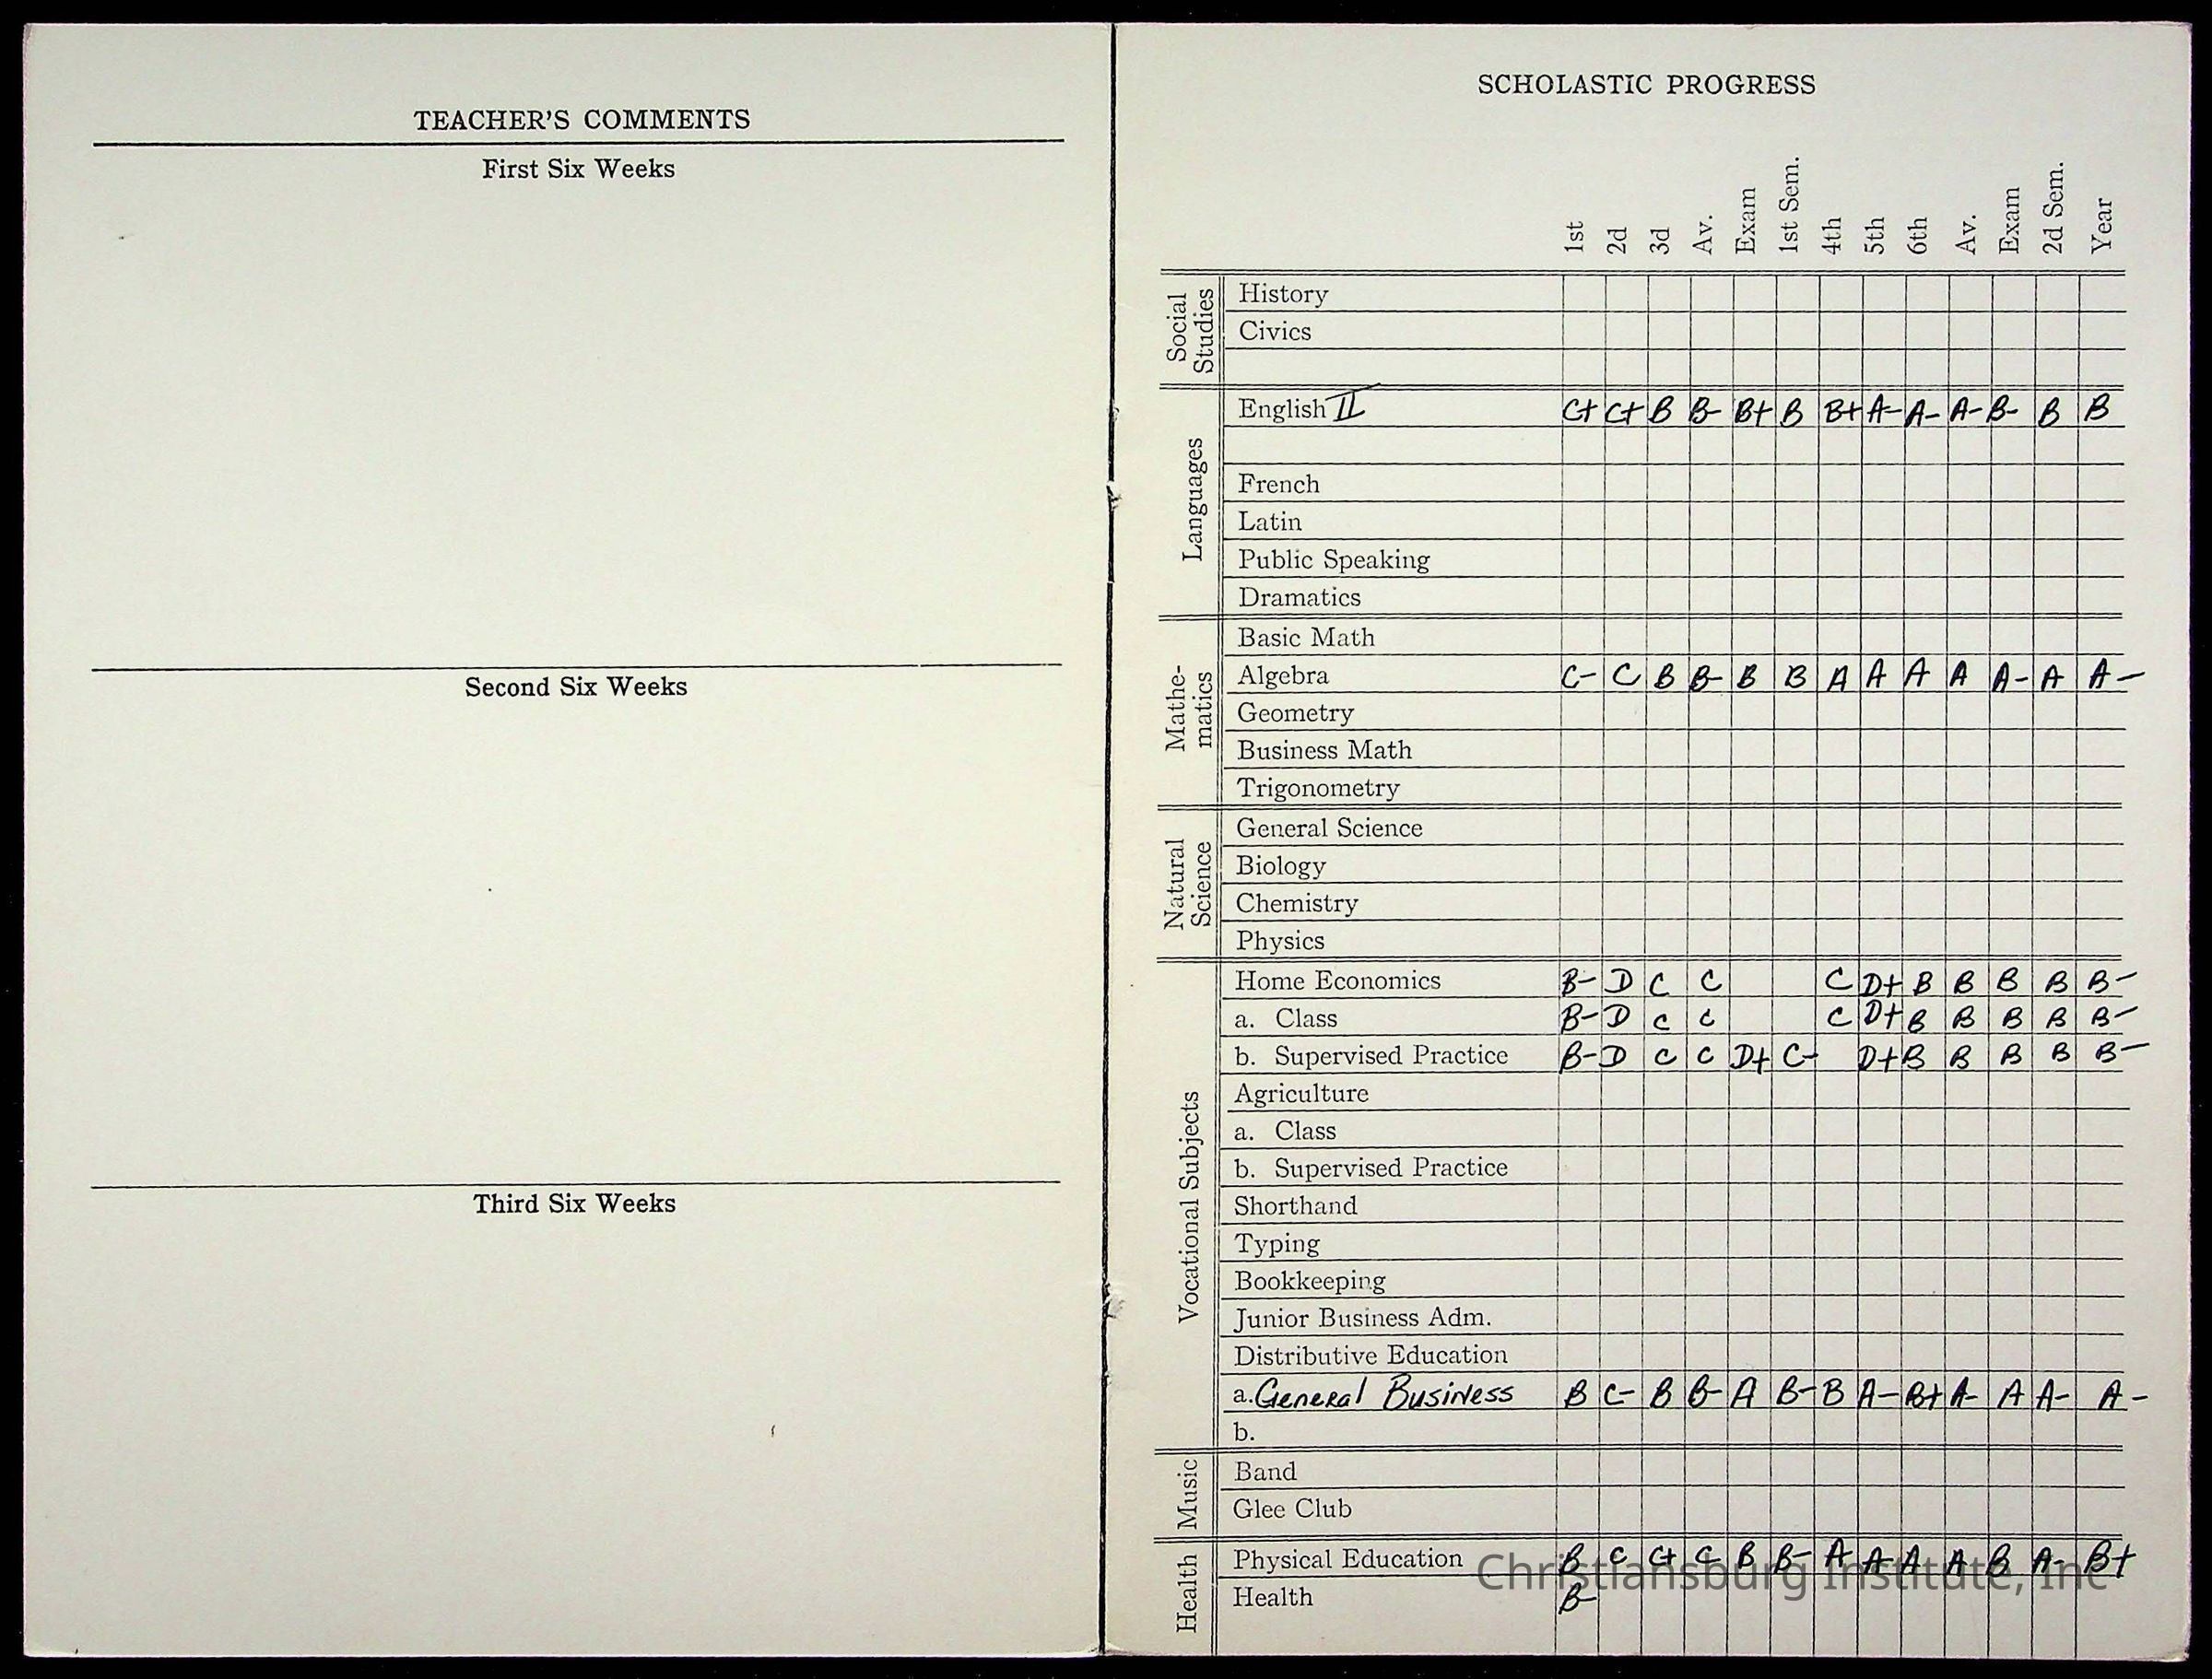 TEACHER'S COMMENTS
First Six Weeks
Second Six Weeks
Third Six Weeks
SCHOLASTIC PROGRESS
1st 2d 3d Av. Exam 1st Sem. 4th 5th 6th Av. Exam 2d Sem. Year
Social Studies
History
Civics
Languages
English II C+ C+ B B- B+ B B+ A- A- A- B- B B
French
Latin
Public Speaking
Dramatics
Mathe-
matics
Basic Math
Algebra C- C B B- B B A A A A A- A A-
Geometry
Business Math
Trigonometry
Natural Science
General Science
Biology
Chemistry
Physics
Vocational Subjects
Home Economics B- D C C C D+ B B B B B-
a. Class B- D C C C D+ B B B B B-
b. Supervised Practice B- D C C D+ C- D+ B B B B B-
Agriculture
a. Class
b. Supervised Practice
Shorthand
Typing
Bookkeeping
Junior Business Adm.
Distributive Education
a. General Business B C- B B- A B- B A- B+ A- A A- A-
b.
Music
Band
Glee Club
Health
Physical Education B C C+ C B B- A A A A B A- B+
Health B-
Christiansburg Institute, Inc